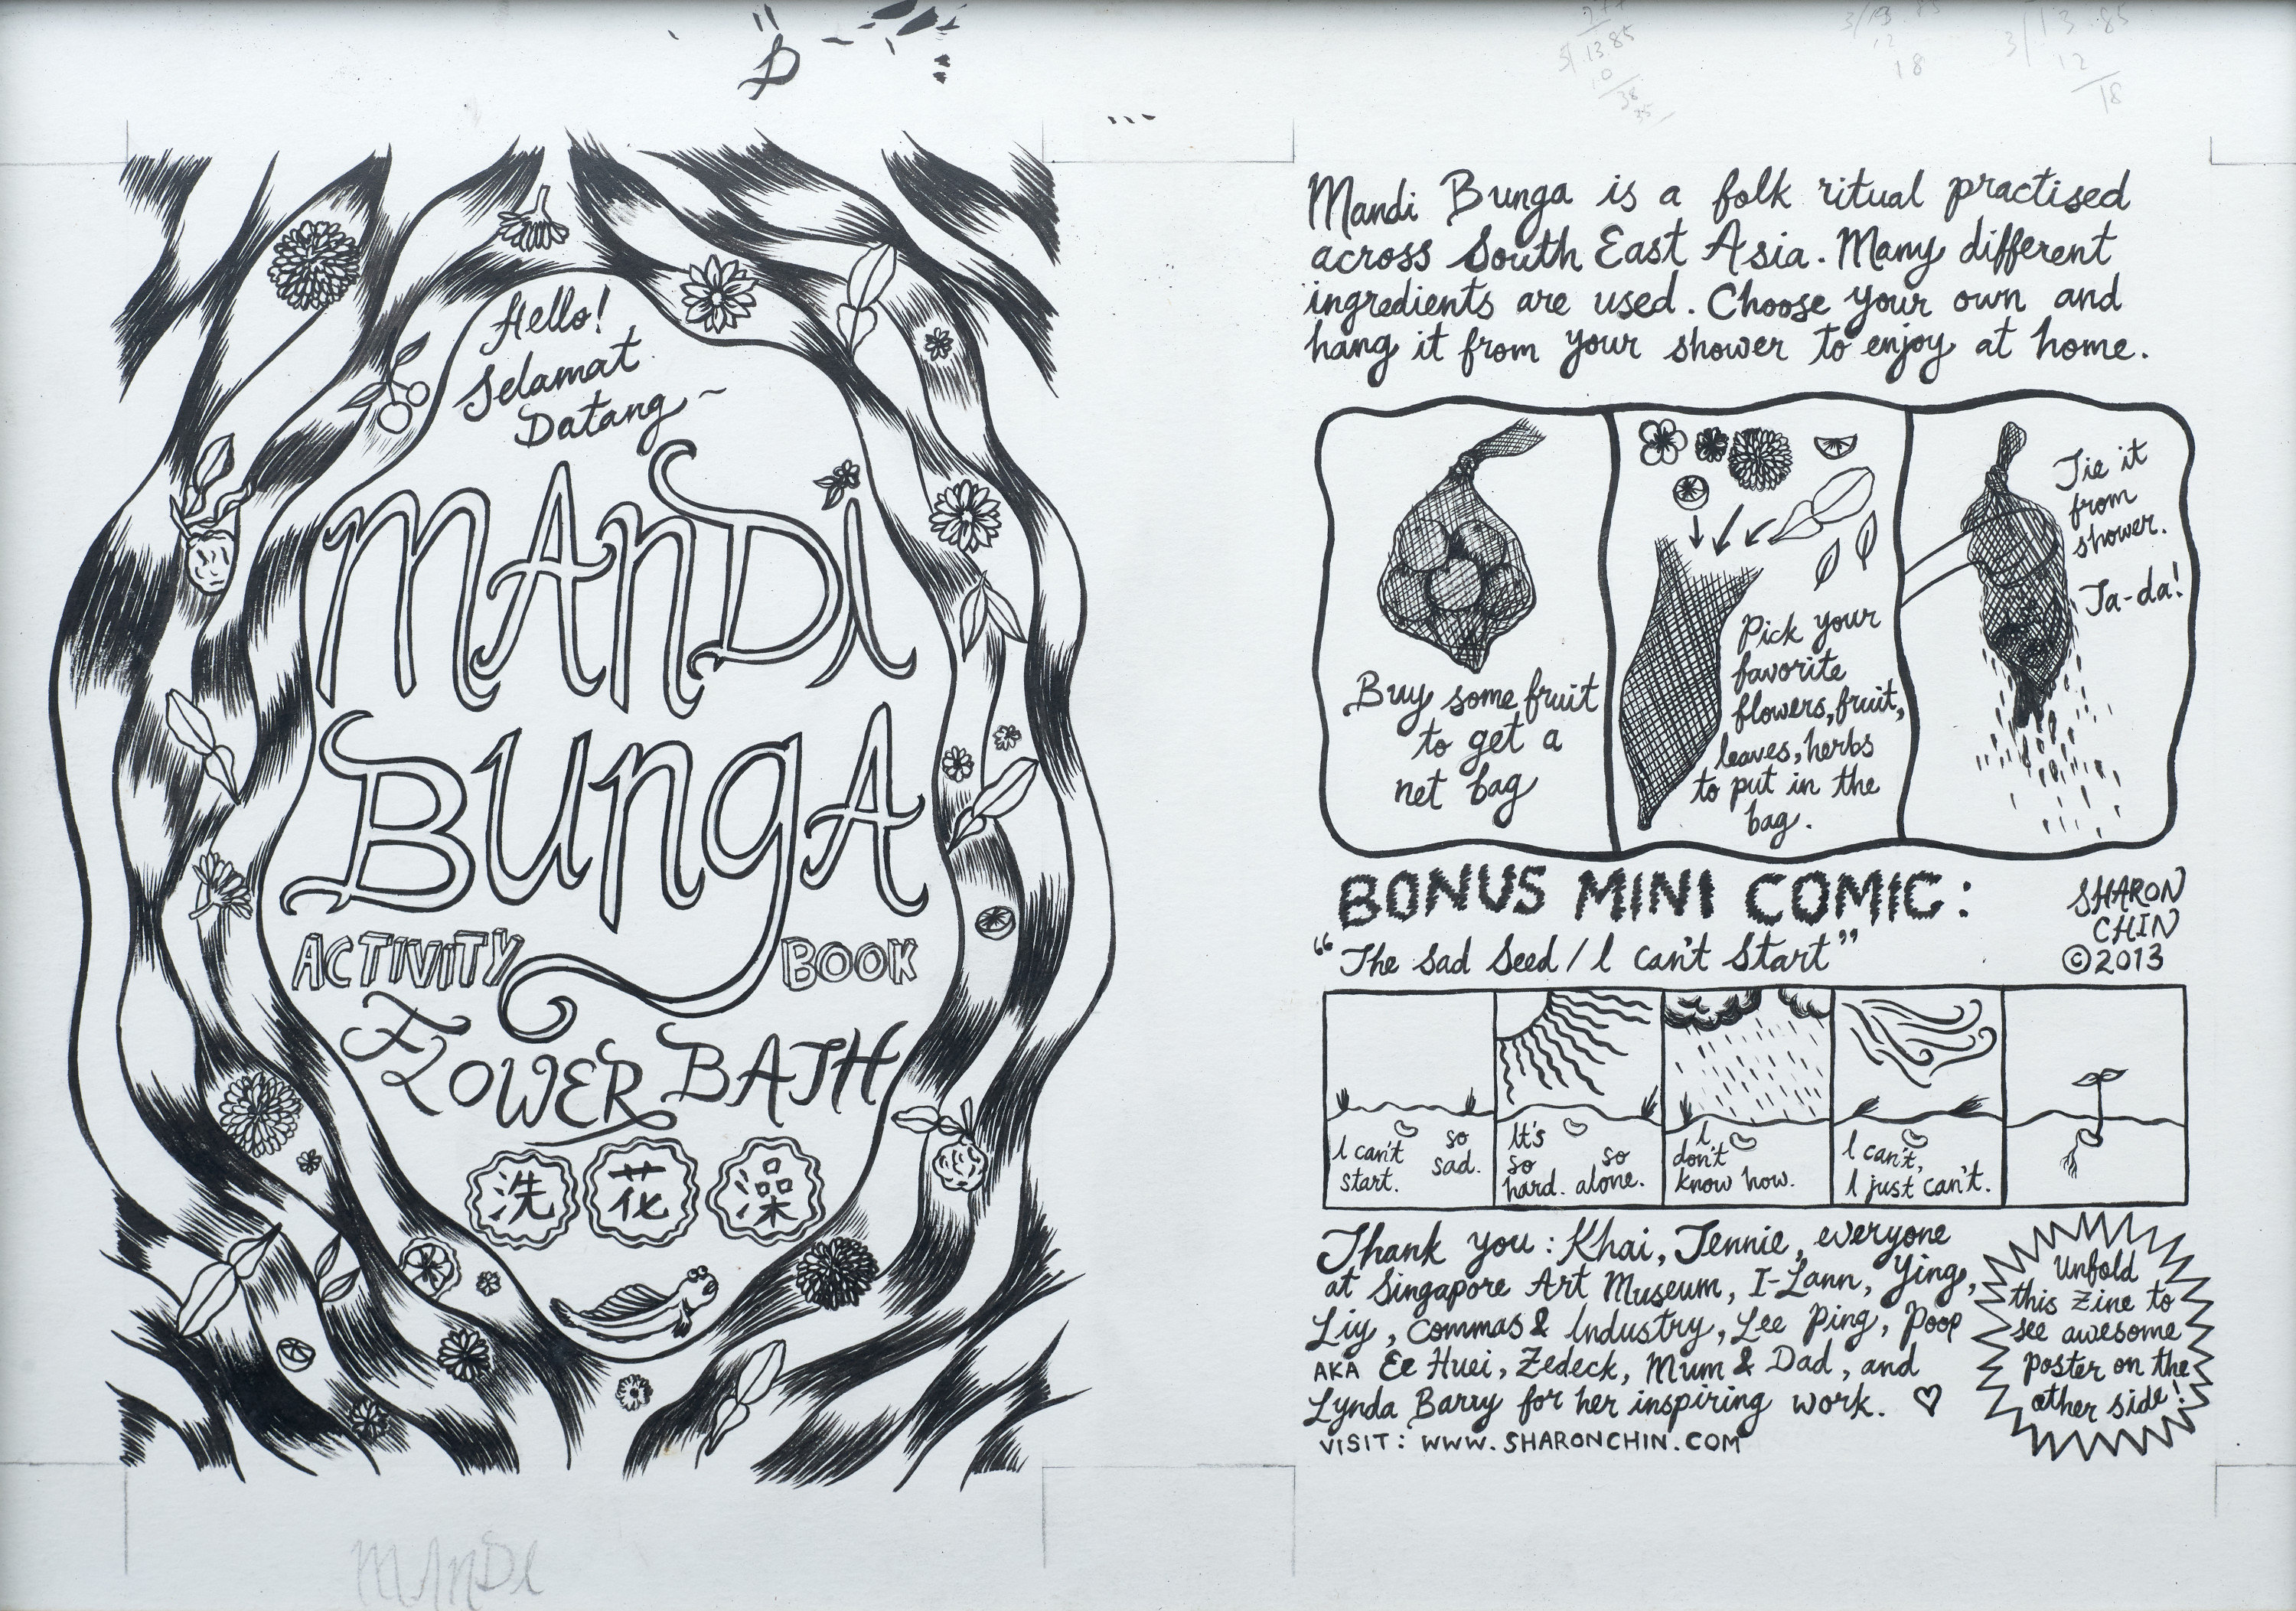 Hello!
Selamat
Datang~
MANDI
BUNGA
ACTIVITY BOOK
FLOWER BATH
洗 花 澡
MANDI
3/13.85
12
18
Mandi Bunga is a folk ritual practised
across South East Asia. Many different
ingredients are used. Choose your own and
hang it from your shower to enjoy at home.
Buy some fruit
to get a
net bag
Pick your
favorite
flowers, fruit,
leaves, herbs
to put in the
bag.
Tie it
from
shower.
Ta-da!
BONUS MINI COMIC:
"The Sad Seed / I Can't Start"
SHARON
CHIN
©2013
I can't
start.
so
sad.
It's
so
hard.
so
alone.
I
don't
know how.
I can't,
I just can't.
Thank you: Khai, Jennie, everyone
at Singapore Art Museum, I-Lann, Ying,
Liy, Commas & Industry, Lee Ping, Poop
AKA Ee Huei, Zedeck, Mum & Dad, and
Lynda Barry for her inspiring work. ♡
VISIT: WWW.SHARONCHIN.COM
Unfold
this zine to
see awesome
poster on the
other side!